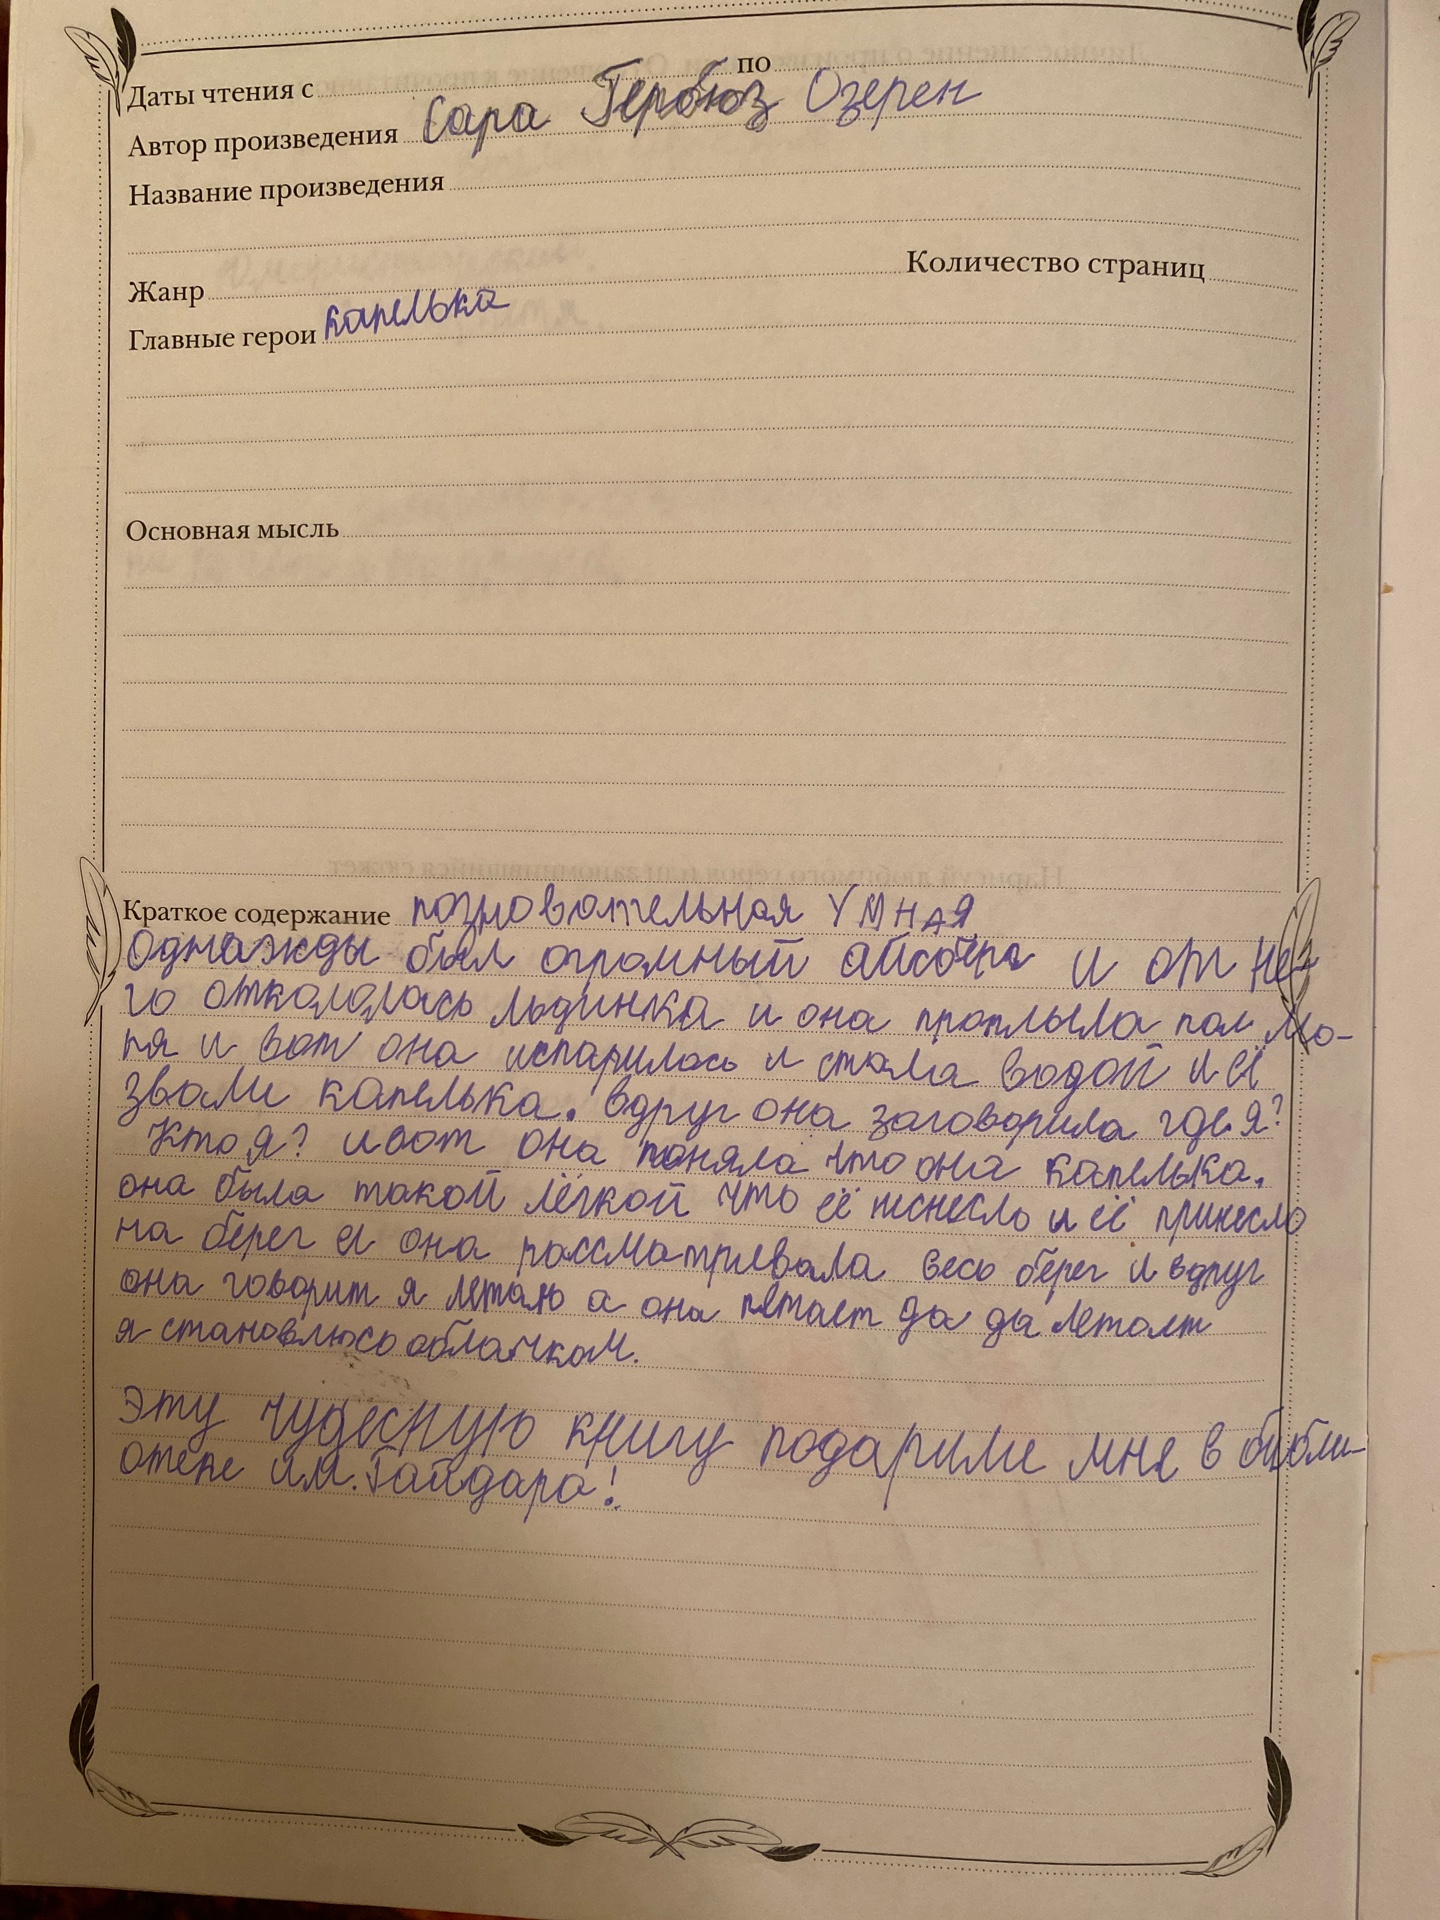 Даты чтения с по
Автор произведения Сара Гербюз Озерен
Название произведения
Жанр Количество страниц
Главные герои капелька
Основная мысль
Краткое содержание познователная УМНАЯ
Однажды был огромный айсберг и от не-
го откололась льдинка и она проплыла пол мо-
ря и вот она испарилась и стала водой и её
звали капелька. вдруг она заговорила где я?
Кто я? и вот она поняла что она капелька.
она была такой лёгкой что её снесло и её принесло
на берег и она рассматривала весь берег и вдруг
она говорит я летаю а она летает да да летает
я становлюсь облачком.
Эту чудесную книгу подарили мне в библи-
отеке им. Гайдара!